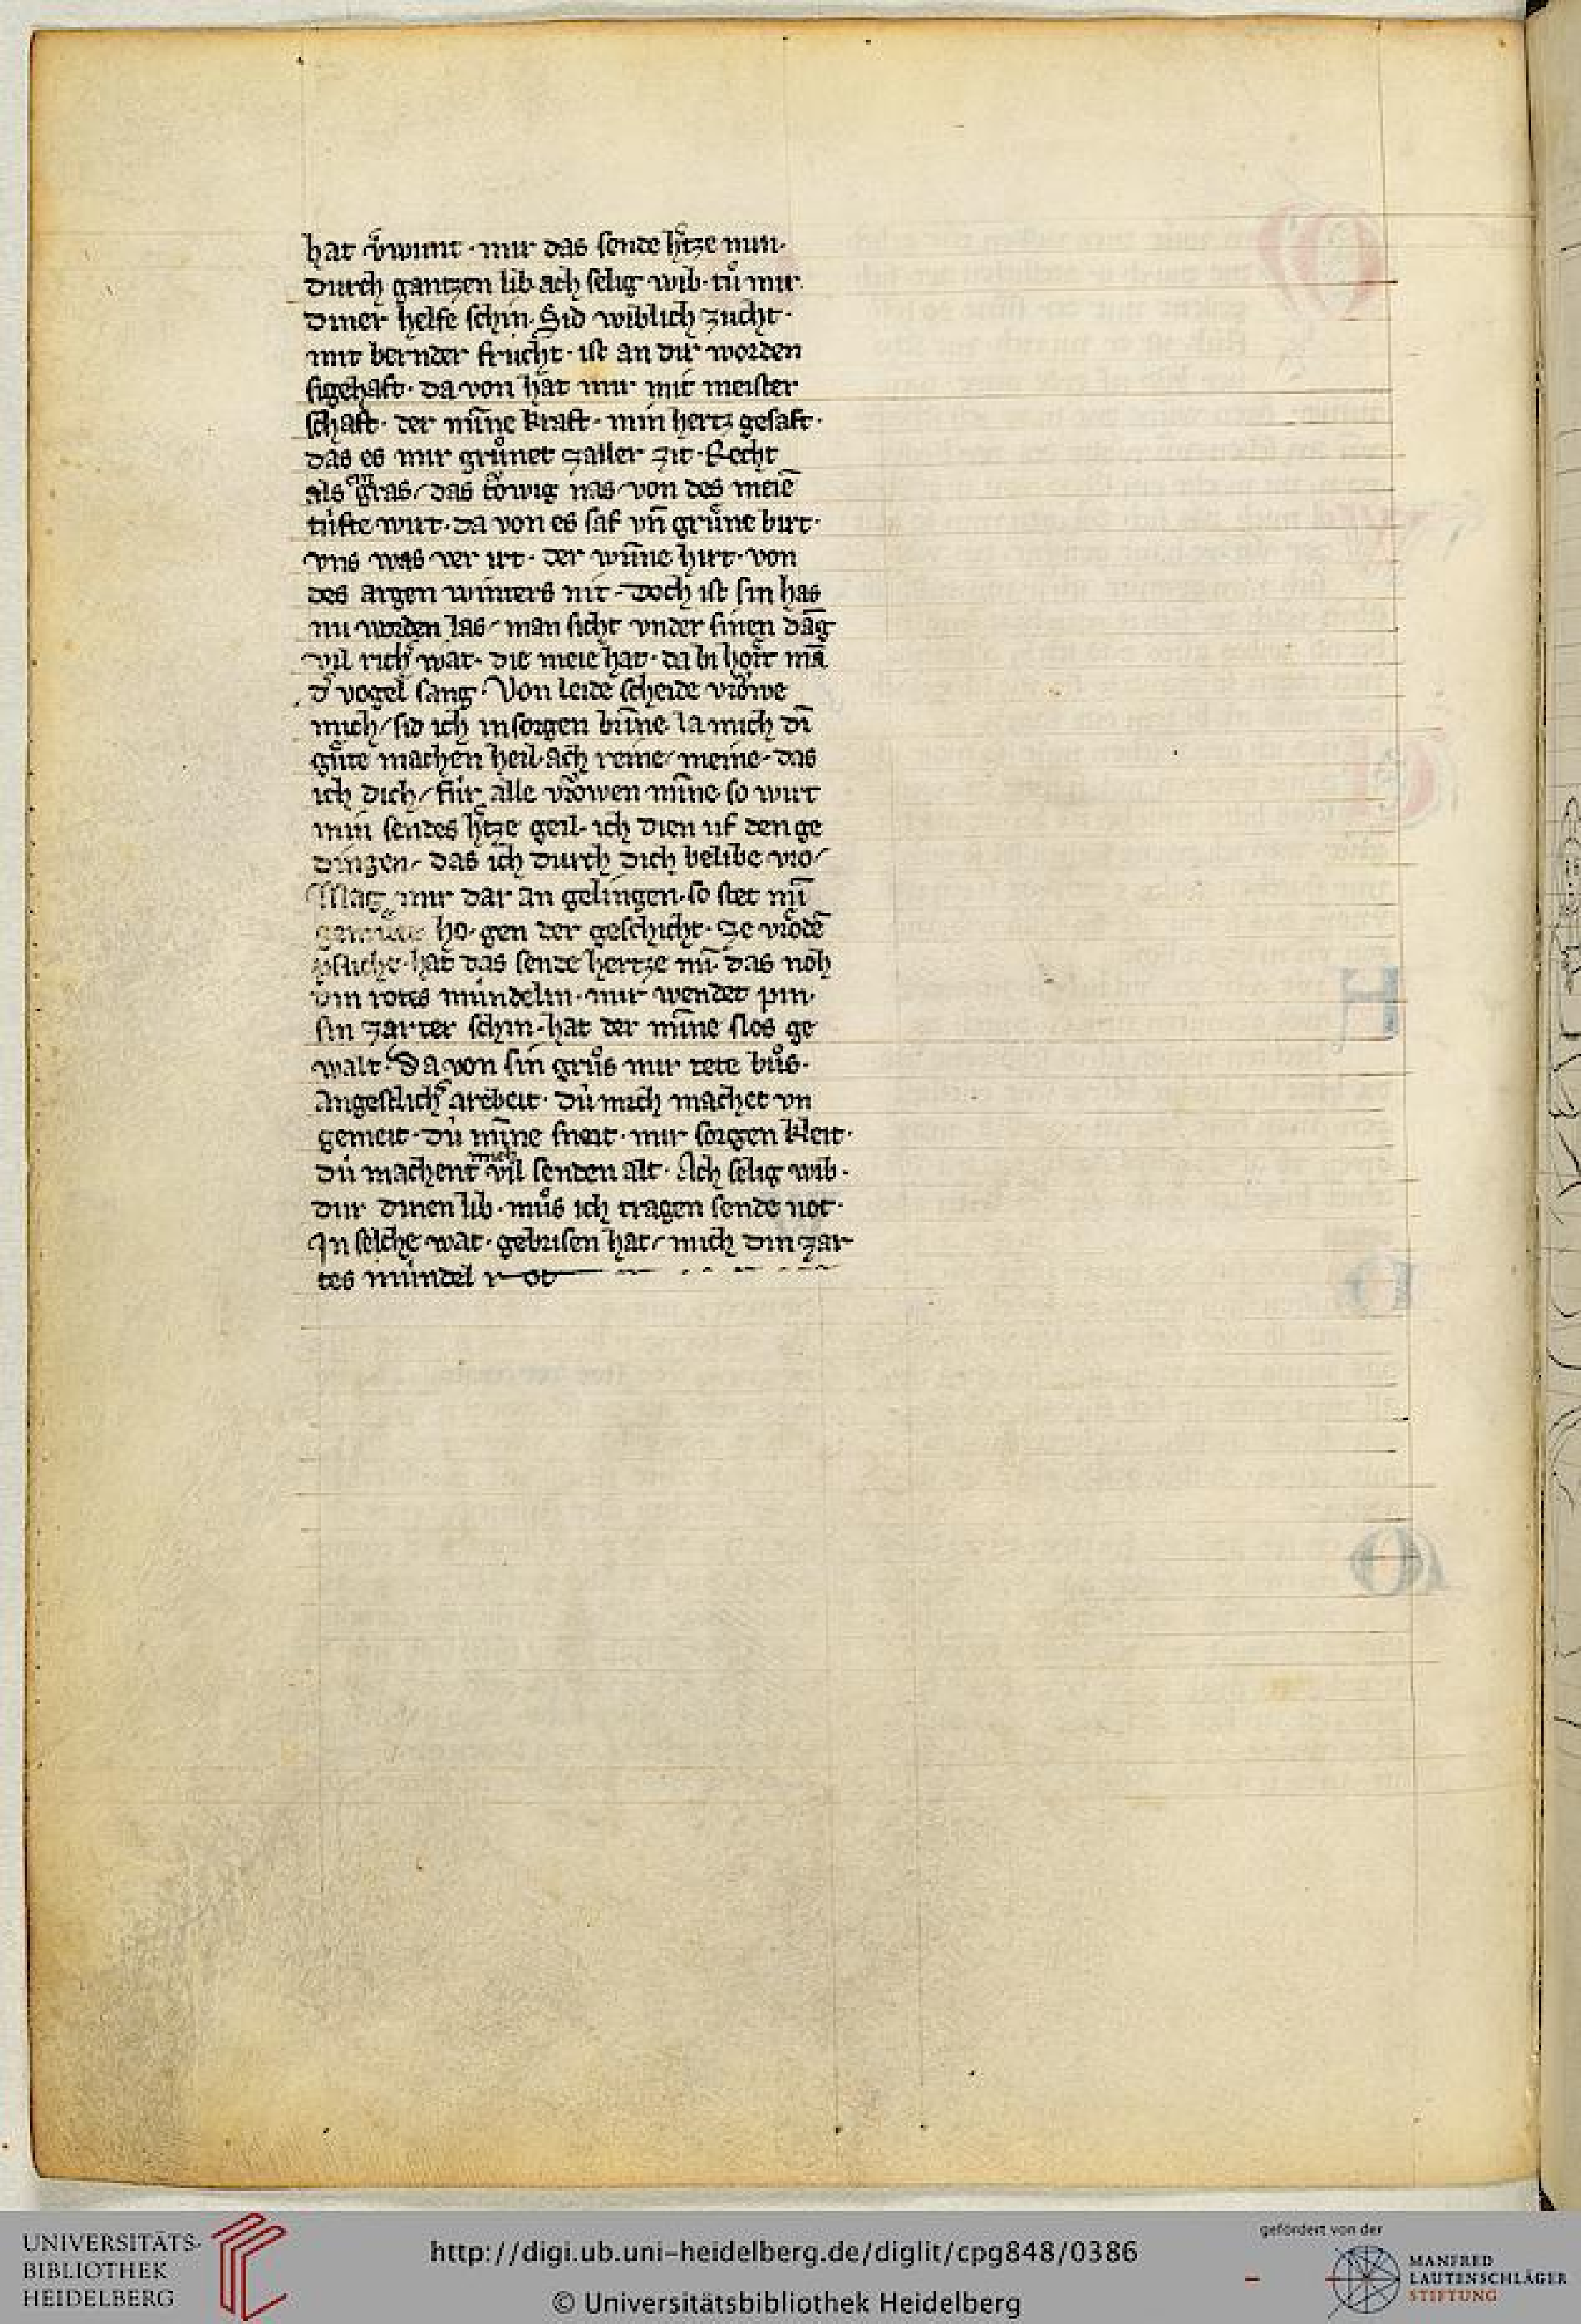 hat v̾wunt · mir das sende h̾tze min·
durch gantzen lib· ach selig wib· tuͦ mir
diner helfe schin· Sid wiblich zucht·
mit bernder frucht· ist an dir worden
sigehaft· da von hat mir mit meister
schaft· der miñe kraft· min hertz gesaft·
das es mir gruͤnet zaller zit· Recht
als ein gras/ das toͮwig nas/ von des meiē
tufte wirt· da von es saf vn̄ gruͤne birt·
vns was ver irt· der wuñe hirt· von
des argen winters nit· Doch ist sin has
nu worden las/ man sicht vnder sinen dāg
vil rich̾ wat· die meie hat· da bi hoͤrt mā
d̾ vogel sang· Von leide scheide vroͮwe
mich/ sid ich in sorgen briñe· la mich dī
guͤte machen heil· ach reine/ meine/ das
ich dich/ fúr alle vroͮwen miñe· so wirt
min sendes h̾tze geil· ich dien uf den ge
dingen/ das ich durch dich belibe vro/
Mag mir dar an gelingen· so stet mī
gemuͤte ho· gen der geschicht· ze vroͤdē
pflicht· hat das sende hertze mī· das noh
din rotes múndelin· mir wendet pin·
sin zarter schin· hat der miñe slos ge
walt· Da von sin gruͦs mir tete buͦs·
angestlich̾ arebeit· dú mich machet vn
gemeit· dú miñe sneit· mir sorgen kleit·
dú machent mich vil senden alt· Ach selig wib·
dur dinen lib· muͦs ich tragen sende not·
In selche wat· gebrisen hat/ mich din zar
tes múndel rot
UNIVERSITÄTS-
BIBLIOTHEK
HEIDELBERG
http://digi.ub.uni-heidelberg.de/diglit/cpg848/0386
© Universitätsbibliothek Heidelberg
gefördert von der
MANFRED
LAUTENSCHLÄGER
STIFTUNG